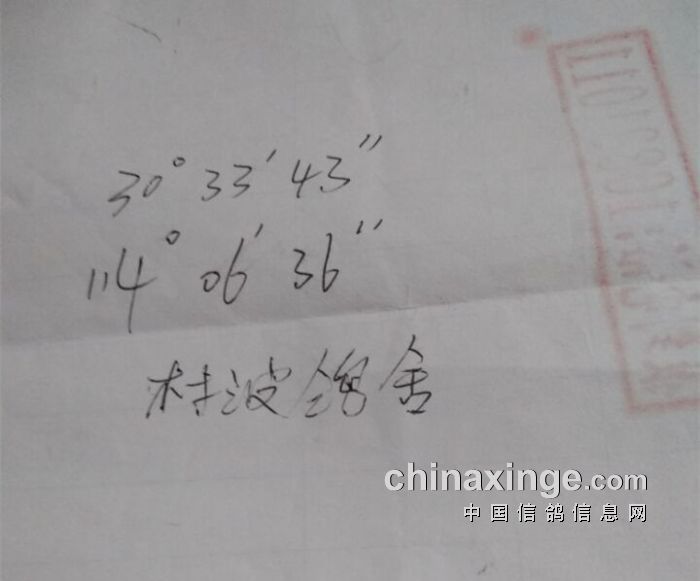 30° 33′ 43″
114° 06′ 36″
村波鸽舍
chinaxinge.com
中国信鸽信息网